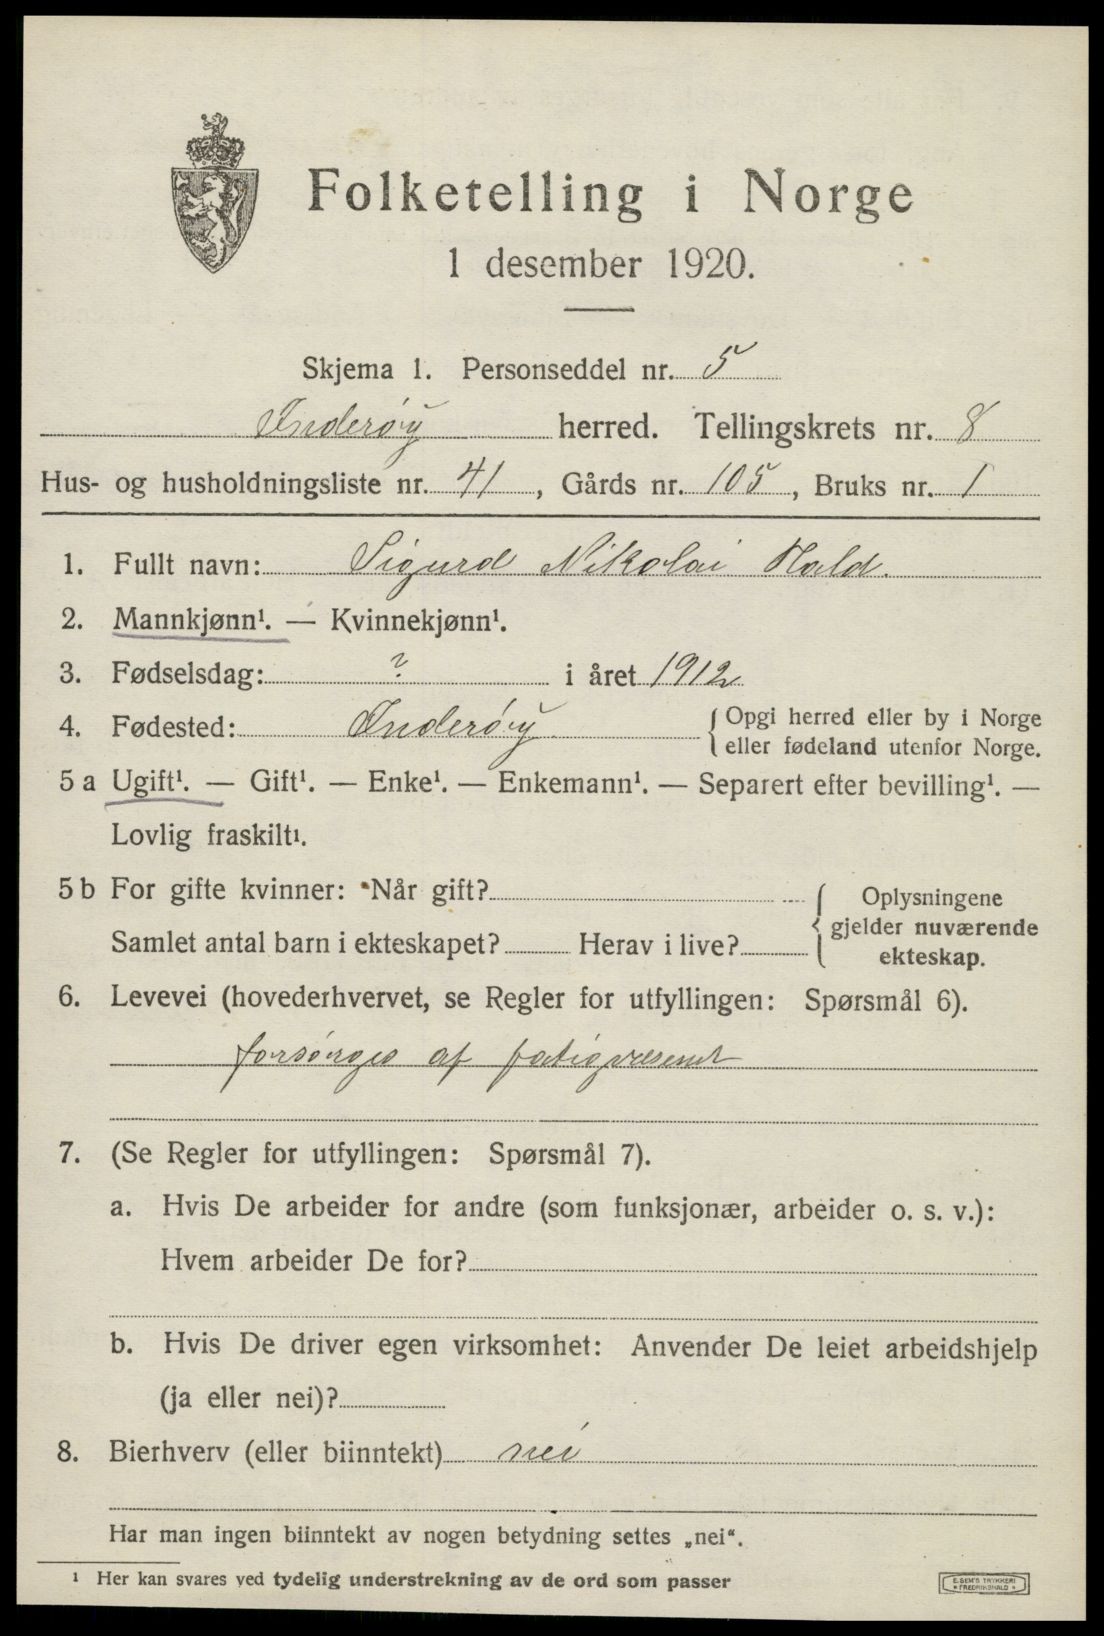 Folketelling i Norge
1 desember 1920.
Skjema 1. Personseddel nr. 5
Inderøy herred. Tellingskrets nr. 8
Hus- og husholdningsliste nr. 41, Gårds nr. 105, Bruks nr. 1
1. Fullt navn: Sigurd Nikolai Hald.
2. Mannkjønn¹. — Kvinnekjønn¹.
3. Fødselsdag: ? i året 1912
4. Fødested: Inderøy. { Opgi herred eller by i Norge
eller fødeland utenfor Norge.
5 a Ugift¹. — Gift¹. — Enke¹. — Enkemann¹. — Separert efter bevilling¹. —
Lovlig fraskilt¹.
5 b For gifte kvinner: Når gift?
Samlet antal barn i ekteskapet? Herav i live?
{ Oplysningene
gjelder nuværende
ekteskap.
6. Levevei (hovederhvervet, se Regler for utfyllingen: Spørsmål 6).
forsørges af fatigvæsenet
7. (Se Regler for utfyllingen: Spørsmål 7).
a. Hvis De arbeider for andre (som funksjonær, arbeider o. s. v.):
Hvem arbeider De for?
b. Hvis De driver egen virksomhet: Anvender De leiet arbeidshjelp
(ja eller nei)?
8. Bierhverv (eller biinntekt) nei
Har man ingen biinntekt av nogen betydning settes „nei“.
¹ Her kan svares ved tydelig understrekning av de ord som passer
E. SEM'S TRYKKERI
• FREDRIKSHALD •